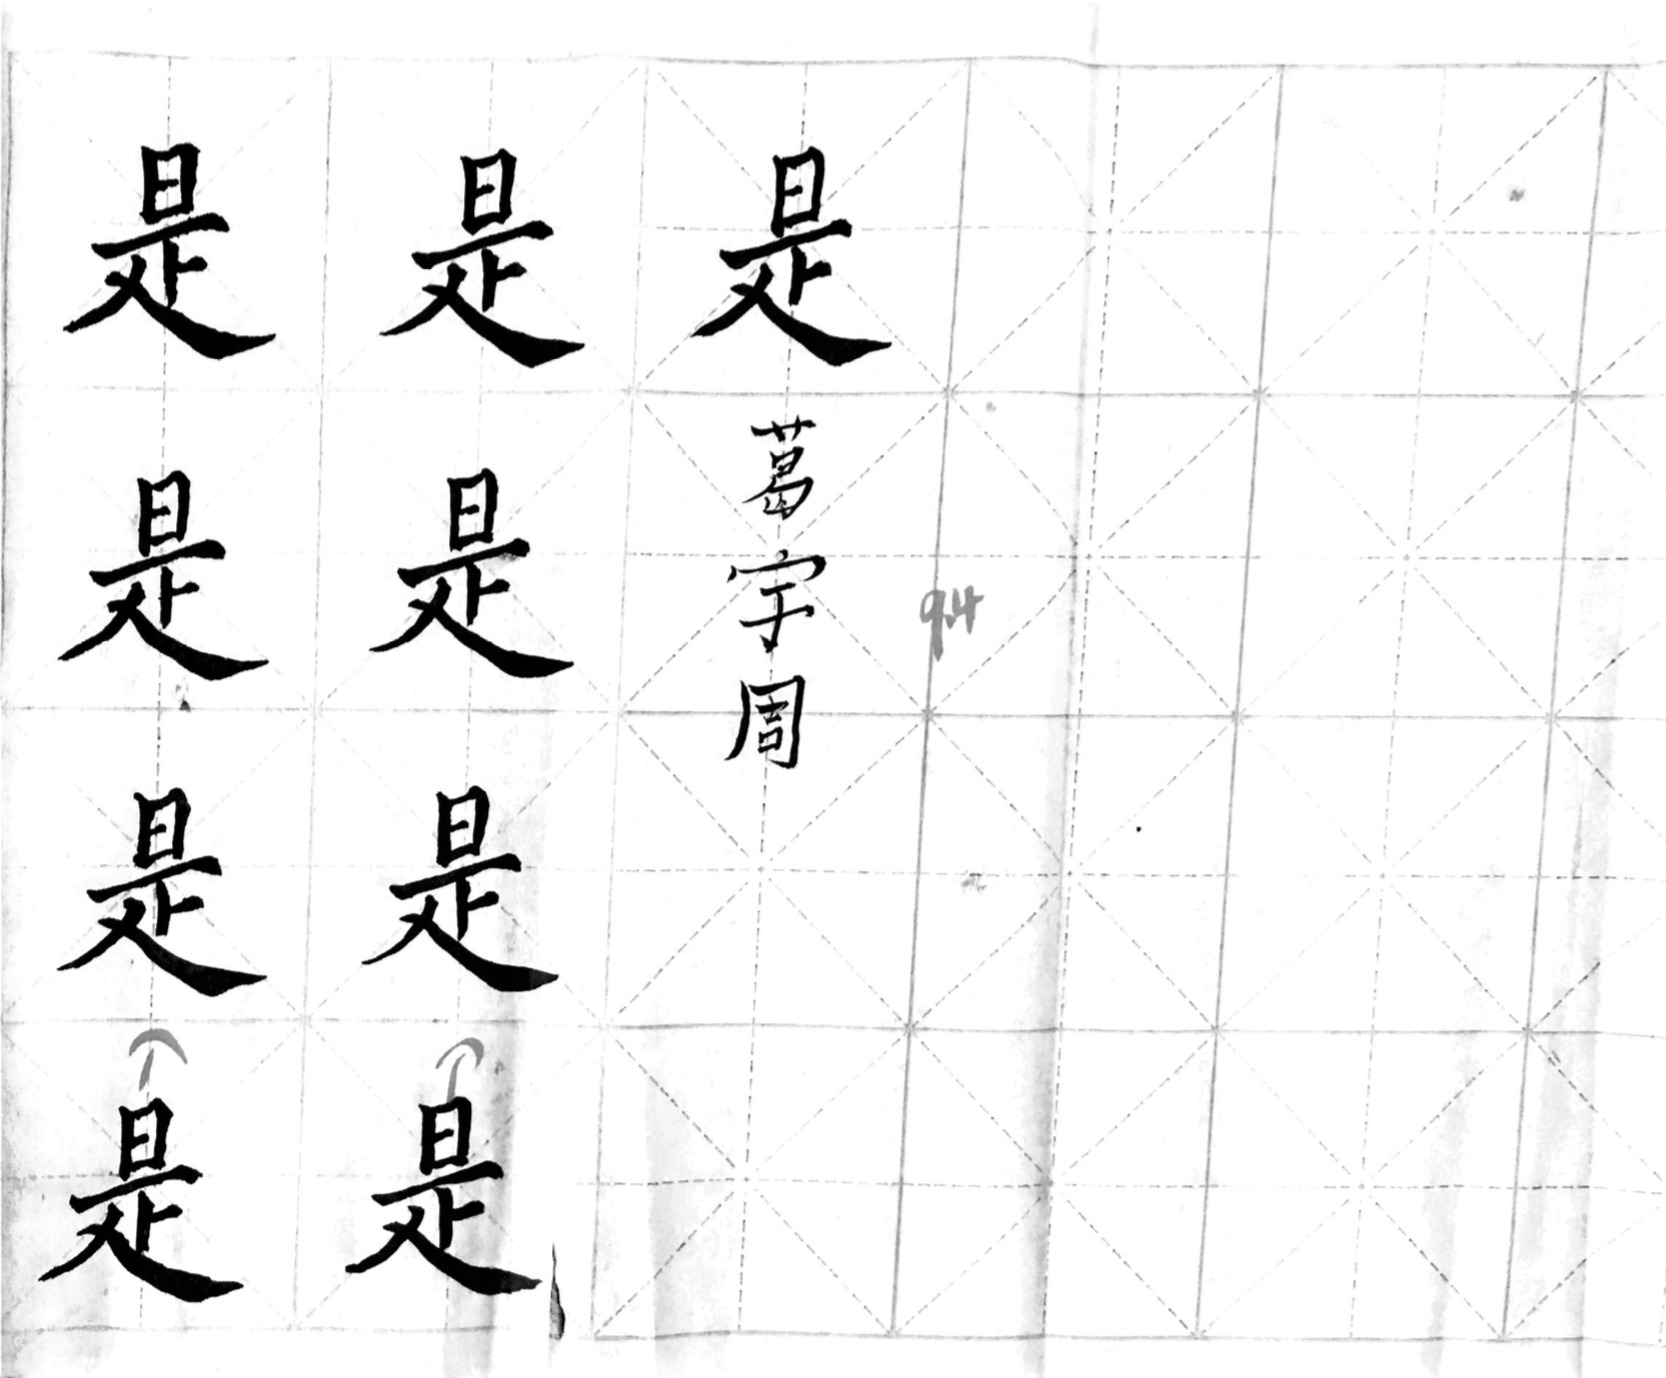 是是是
是是
是是
是是
葛宇周
94